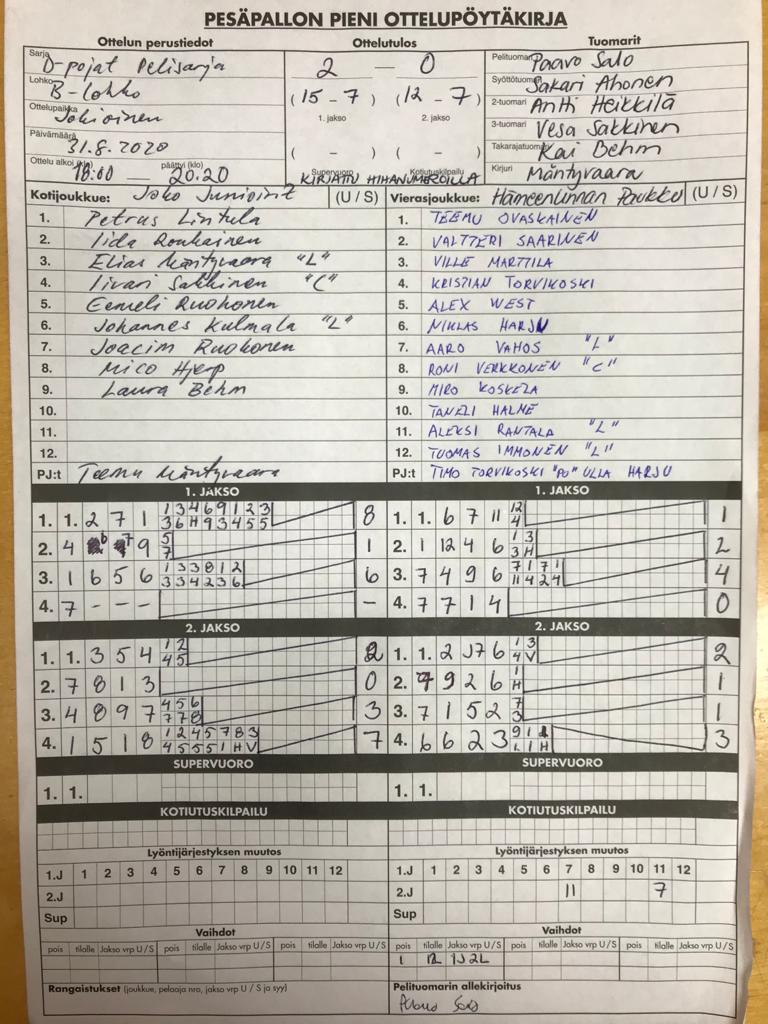 PESÄPALLON PIENI OTTELUPÖYTÄKIRJA
Ottelun perustiedot
Ottelutulos
Tuomarit
Sarja D-pojat Pelisarja
Lohko B-lohko
Ottelupaikka Jokioinen
Päivämäärä 31.8.2020
Ottelu alkoi (klo) 18:00 — päättyi (klo) 20.20
2 — 0
(15 - 7) (12 - 7)
1. jakso 2. jakso
( - ) ( - )
Supervuoro Kotiutuskilpailu
KIRJATTU HIHANUMEROILLA
Pelituomari Paavo Salo
Syöttötuomari Sakari Ahonen
2-tuomari Antti Heikkilä
3-tuomari Vesa Sakkinen
Takarajatuomari Kai Behm
Kirjuri Mäntyvaara
Kotijoukkue: Joko Juniorit (U / S)
1. Petrus Lintula
2. Iida Ronkainen
3. Elias Mäntyvaara "L"
4. Iivari Sakkinen "C"
5. Eemeli Ruohonen
6. Johannes Kulmala "L"
7. Joacim Ruohonen
8. Mico Hjerp
9. Laura Behm
10.
11.
12.
PJ:t Teemu Mäntyvaara
Vierasjoukkue: Hämeenlinnan Paukku (U / S)
1. TEEMU OVASKAINEN
2. VALTTERI SAARINEN
3. VILLE MARTTILA
4. KRISTIAN TORVIKOSKI
5. ALEX WEST
6. NIKLAS HARJU
7. AARO VAHOS "L"
8. RONI VERKKONEN "C"
9. MIRO KOSKELA
10. TANELI HALME
11. ALEKSI RANTALA "L"
12. TUOMAS IMMONEN "L"
PJ:t TIMO TORVIKOSKI "PJ" ULLA HARJU
1. JAKSO
1. 1. 2 7 1 1 3 4 6 9 1 2 3 8
3 6 H 9 3 4 5 5
2. 4 6 7 9 5 1
7
3. 1 6 5 6 1 3 3 8 1 2 6
3 3 4 2 3 6
4. 7 - - - -
1. JAKSO
1. 1. 6 7 11 12 1
4
2. 1 12 4 6 1 3 2
3 H
3. 7 4 9 6 7 1 7 1 4
11 4 2 4
4. 7 7 1 4 0
2. JAKSO
1. 1. 3 5 4 1 2 2
4 5
2. 7 8 1 3 0
3. 4 8 9 7 4 5 6 3
7 7 8
4. 1 5 1 8 1 2 4 5 7 8 3 7
4 5 5 5 1 H V
2. JAKSO
1. 1. 2 J7 6 1 3 2
4 V
2. 7 9 2 6 1 1
H
3. 7 1 5 2 7 1
3
4. 6 6 2 3 9 1 1 3
1 1 H
SUPERVUORO
1. 1.
SUPERVUORO
1. 1.
KOTIUTUSKILPAILU
KOTIUTUSKILPAILU
Lyöntijärjestyksen muutos
1.J 1 2 3 4 5 6 7 8 9 10 11 12
2.J
Sup
Lyöntijärjestyksen muutos
1.J 1 2 3 4 5 6 7 8 9 10 11 12
2.J 11 7
Sup
Vaihdot
pois tilalle Jakso vrp U / S pois tilalle Jakso vrp U / S pois tilalle Jakso vrp U / S
Vaihdot
pois tilalle Jakso vrp U / S pois tilalle Jakso vrp U / S pois tilalle Jakso vrp U / S
1 12 1J2L
Rangaistukset (joukkue, pelaaja nro, jakso vrp U / S ja syy)
Pelituomarin allekirjoitus
Paavo Salo